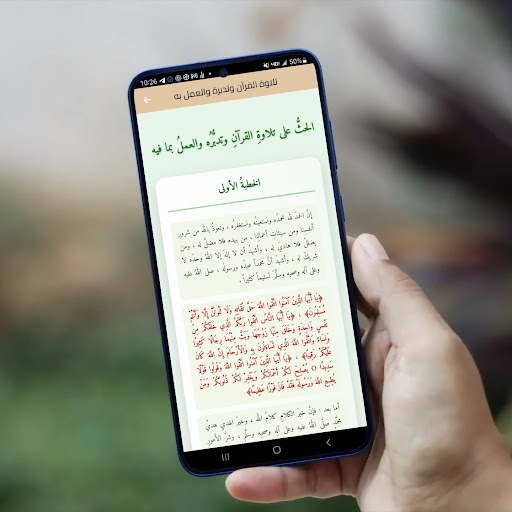 10:26
50%
تلاوة القرآن وتدبرة والعمل به
الحثُّ على تلاوةِ القرآنِ وتدبُّرُه والعملُ بما فيه
الخطبةُ الأولى
إنَّ الحمدَ لله نحمدُه ونستعينُه ونستغفرُه ، ونعوذُ بالله من شرورِ
أنفسِنا ومن سيئاتِ أعمالِنا ، من يهدِه فلا مضلَّ له ، ومن
يضللْ فلا هاديَ له ، وأشهدُ أنْ لا إلهَ إلا اللهُ وحدَه لا
شريكَ له ، وأشهدُ أنَّ محمداً عبدُه ورسولُه ، صلى اللهُ عليه
وعلى آلِه وصحبِه وسلَّم تسليماً كثيراً .
﴿يَا أَيُّهَا الَّذِينَ آمَنُوا اتَّقُوا اللَّهَ حَقَّ تُقَاتِهِ وَلَا تَمُوتُنَّ إِلَّا وَأَنْتُمْ
مُسْلِمُونَ﴾ ، ﴿يَا أَيُّهَا النَّاسُ اتَّقُوا رَبَّكُمُ الَّذِي خَلَقَكُمْ مِنْ
نَفْسٍ وَاحِدَةٍ وَخَلَقَ مِنْهَا زَوْجَهَا وَبَثَّ مِنْهُمَا رِجَالًا كَثِيرًا
وَنِسَاءً وَاتَّقُوا اللَّهَ الَّذِي تَسَاءَلُونَ بِهِ وَالْأَرْحَامَ إِنَّ اللَّهَ كَانَ
عَلَيْكُمْ رَقِيبًا﴾ ، ﴿يَا أَيُّهَا الَّذِينَ آمَنُوا اتَّقُوا اللَّهَ وَقُولُوا قَوْلًا
سَدِيدًا ۝ يُصْلِحْ لَكُمْ أَعْمَالَكُمْ وَيَغْفِرْ لَكُمْ ذُنُوبَكُمْ وَمَنْ
يُطِعِ اللَّهَ وَرَسُولَهُ فَقَدْ فَازَ فَوْزًا عَظِيمًا﴾
أما بعد . فإنَّ خيرَ الكلامِ كلامُ الله ، وخيرَ الهدي هديُ
محمَّدٍ صلَّى اللهُ عليه وعلى آلِه وصحبِه وسلَّم ، وشرَّ الأمورِ